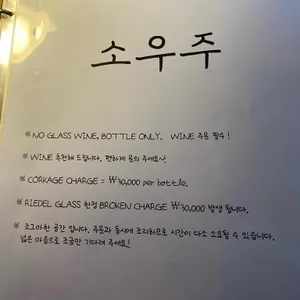 소우주
※ NO GLASS WINE, BOTTLE ONLY. WINE 주문 필수!
※ WINE 추천해 드립니다. 편하게 문의 주세요~!
※ CORKAGE CHARGE = ₩30,000 per bottle.
※ RIEDEL GLASS 한정 BROKEN CHARGE ₩30,000 발생 됩니다.
※ 조그마한 공간 입니다. 주문과 동시에 조리하므로 시간이 다소 소요될 수 있습니다.
넓은 마음으로 조금만 기다려 주세요!